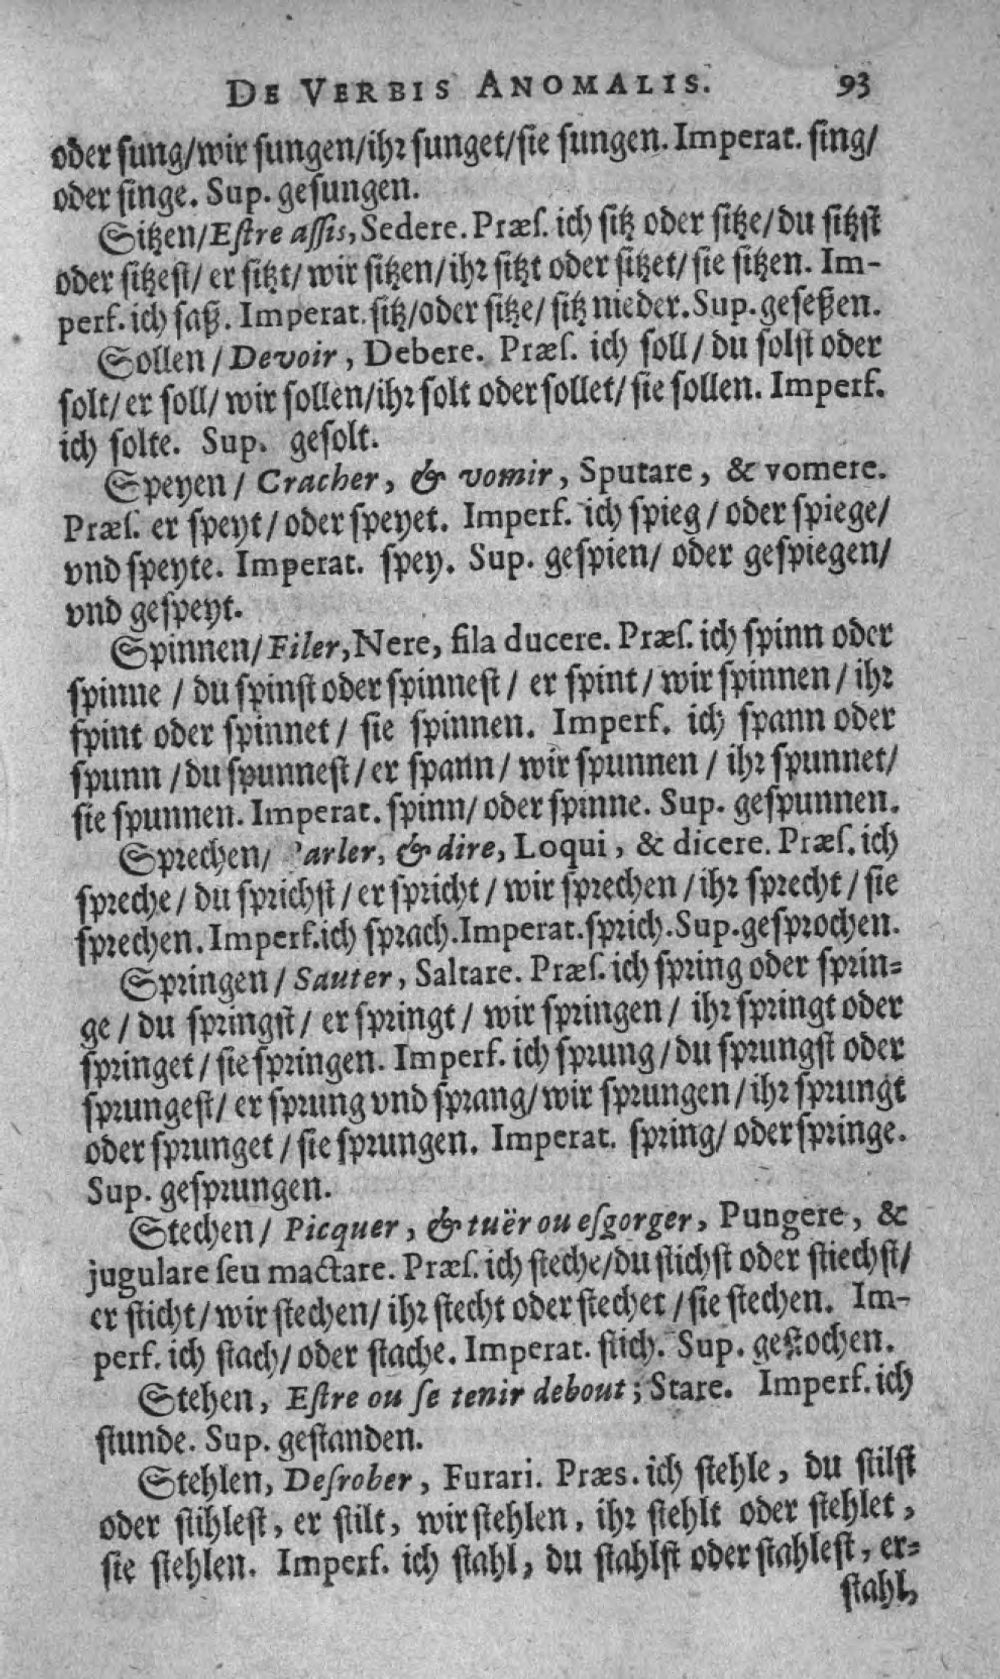 DE VERBIS ANOMALIS. 93
oder ſung/wir ſungen/ihr ſunget/ſie ſungen. Imperat. ſing/
oder ſinge. Sup. geſungen.
Sitzen/Eſtre aſſis, Sedere. Præſ. ich ſitz oder ſitze/du ſitzſt
oder ſitzeſt/ er ſitzt/ wir ſitzen/ihr ſitzt oder ſitzet/ ſie ſitzen. Im-
perf. ich ſaß. Imperat. ſitz/oder ſitze/ ſitz nieder. Sup. geſeßen.
Sollen / Devoir, Debere. Præſ. ich ſoll/ du ſolſt oder
ſolt/ er ſoll/ wir ſollen/ihr ſolt oder ſollet/ ſie ſollen. Imperf.
ich ſolte. Sup. geſolt.
Speyen / Cracher, & vomir, Sputare, & vomere.
Præſ. er ſpeyt / oder ſpeyet. Imperf. ich ſpieg / oder ſpiege/
vnd ſpeyte. Imperat. ſpey. Sup. geſpien/ oder geſpiegen/
vnd geſpeyt.
Spinnen/ Filer, Nere, fila ducere. Præſ. ich ſpinn oder
ſpinne / du ſpinſt oder ſpinneſt / er ſpint / wir ſpinnen / ihr
ſpint oder ſpinnet / ſie ſpinnen. Imperf. ich ſpann oder
ſpunn / du ſpunneſt / er ſpann / wir ſpunnen / ihr ſpunnet/
ſie ſpunnen. Imperat. ſpinn/ oder ſpinne. Sup. geſpunnen.
Sprechen/ 'arler, & dire, Loqui, & dicere. Præſ. ich
ſpreche / du ſprichſt / er ſpricht / wir ſprechen / ihr ſprecht / ſie
ſprechen. Imperf. ich ſprach. Imperat. ſprich. Sup. geſprochen.
Springen / Sauter, Saltare. Præſ. ich ſpring oder ſprin=
ge / du ſpringſt / er ſpringt / wir ſpringen / ihr ſpringt oder
ſpringet / ſie ſpringen. Imperf. ich ſprung / du ſprungſt oder
ſprungeſt/ er ſprung vnd ſprang/ wir ſprungen / ihr ſprungt
oder ſprunget / ſie ſprungen. Imperat. ſpring/ oder ſpringe.
Sup. geſprungen.
Stechen / Picquer, & tuër ou eſgorger, Pungere, &
jugulare ſeu mactare. Præſ. ich ſteche/du ſtichſt oder ſtiechſt/
er ſticht / wir ſtechen/ ihr ſtecht oder ſtechet / ſie ſtechen. Im-
perf. ich ſtach/ oder ſtache. Imperat. ſtich. Sup. geſtochen.
Stehen, Eſtre ou ſe tenir debout; Stare. Imperf. ich
ſtunde. Sup. geſtanden.
Stehlen, Deſrober, Furari. Præs. ich ſtehle, du ſtilſt
oder ſtihleſt, er ſtilt, wir ſtehlen, ihr ſtehlt oder ſtehlet,
ſie ſtehlen. Imperf. ich ſtahl, du ſtahlſt oder ſtahleſt, er=
ſtahl,